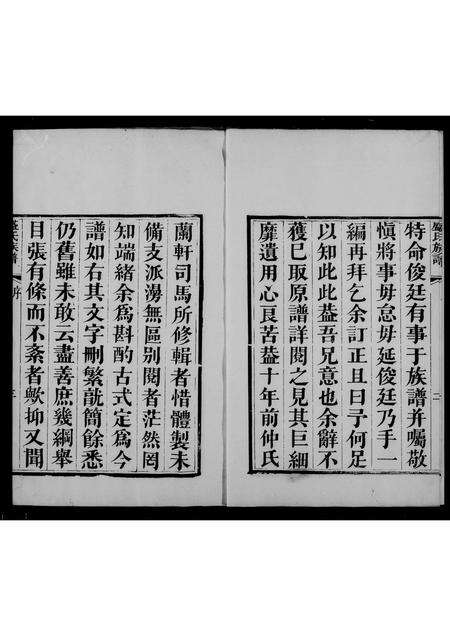 氏族譜
二
特命俊廷有事于族譜并囑敬
慎將事毋怠毋延俊廷乃手一
編再拜乞余訂正且曰予何足
以知此此葢吾兄意也余辭不
獲已取原譜詳閱之見其巨細
靡遺用心良苦葢十年前仲氏
蘭軒司馬所修輯者惜體製未
備支派漫無區別閱者茫然罔
知端緒余爲斟酌古式定爲今
譜如右其文字刪繁就簡餘悉
仍舊雖未敢云盡善庶幾綱舉
目張有條而不紊者歟抑又聞
氏族譜
序